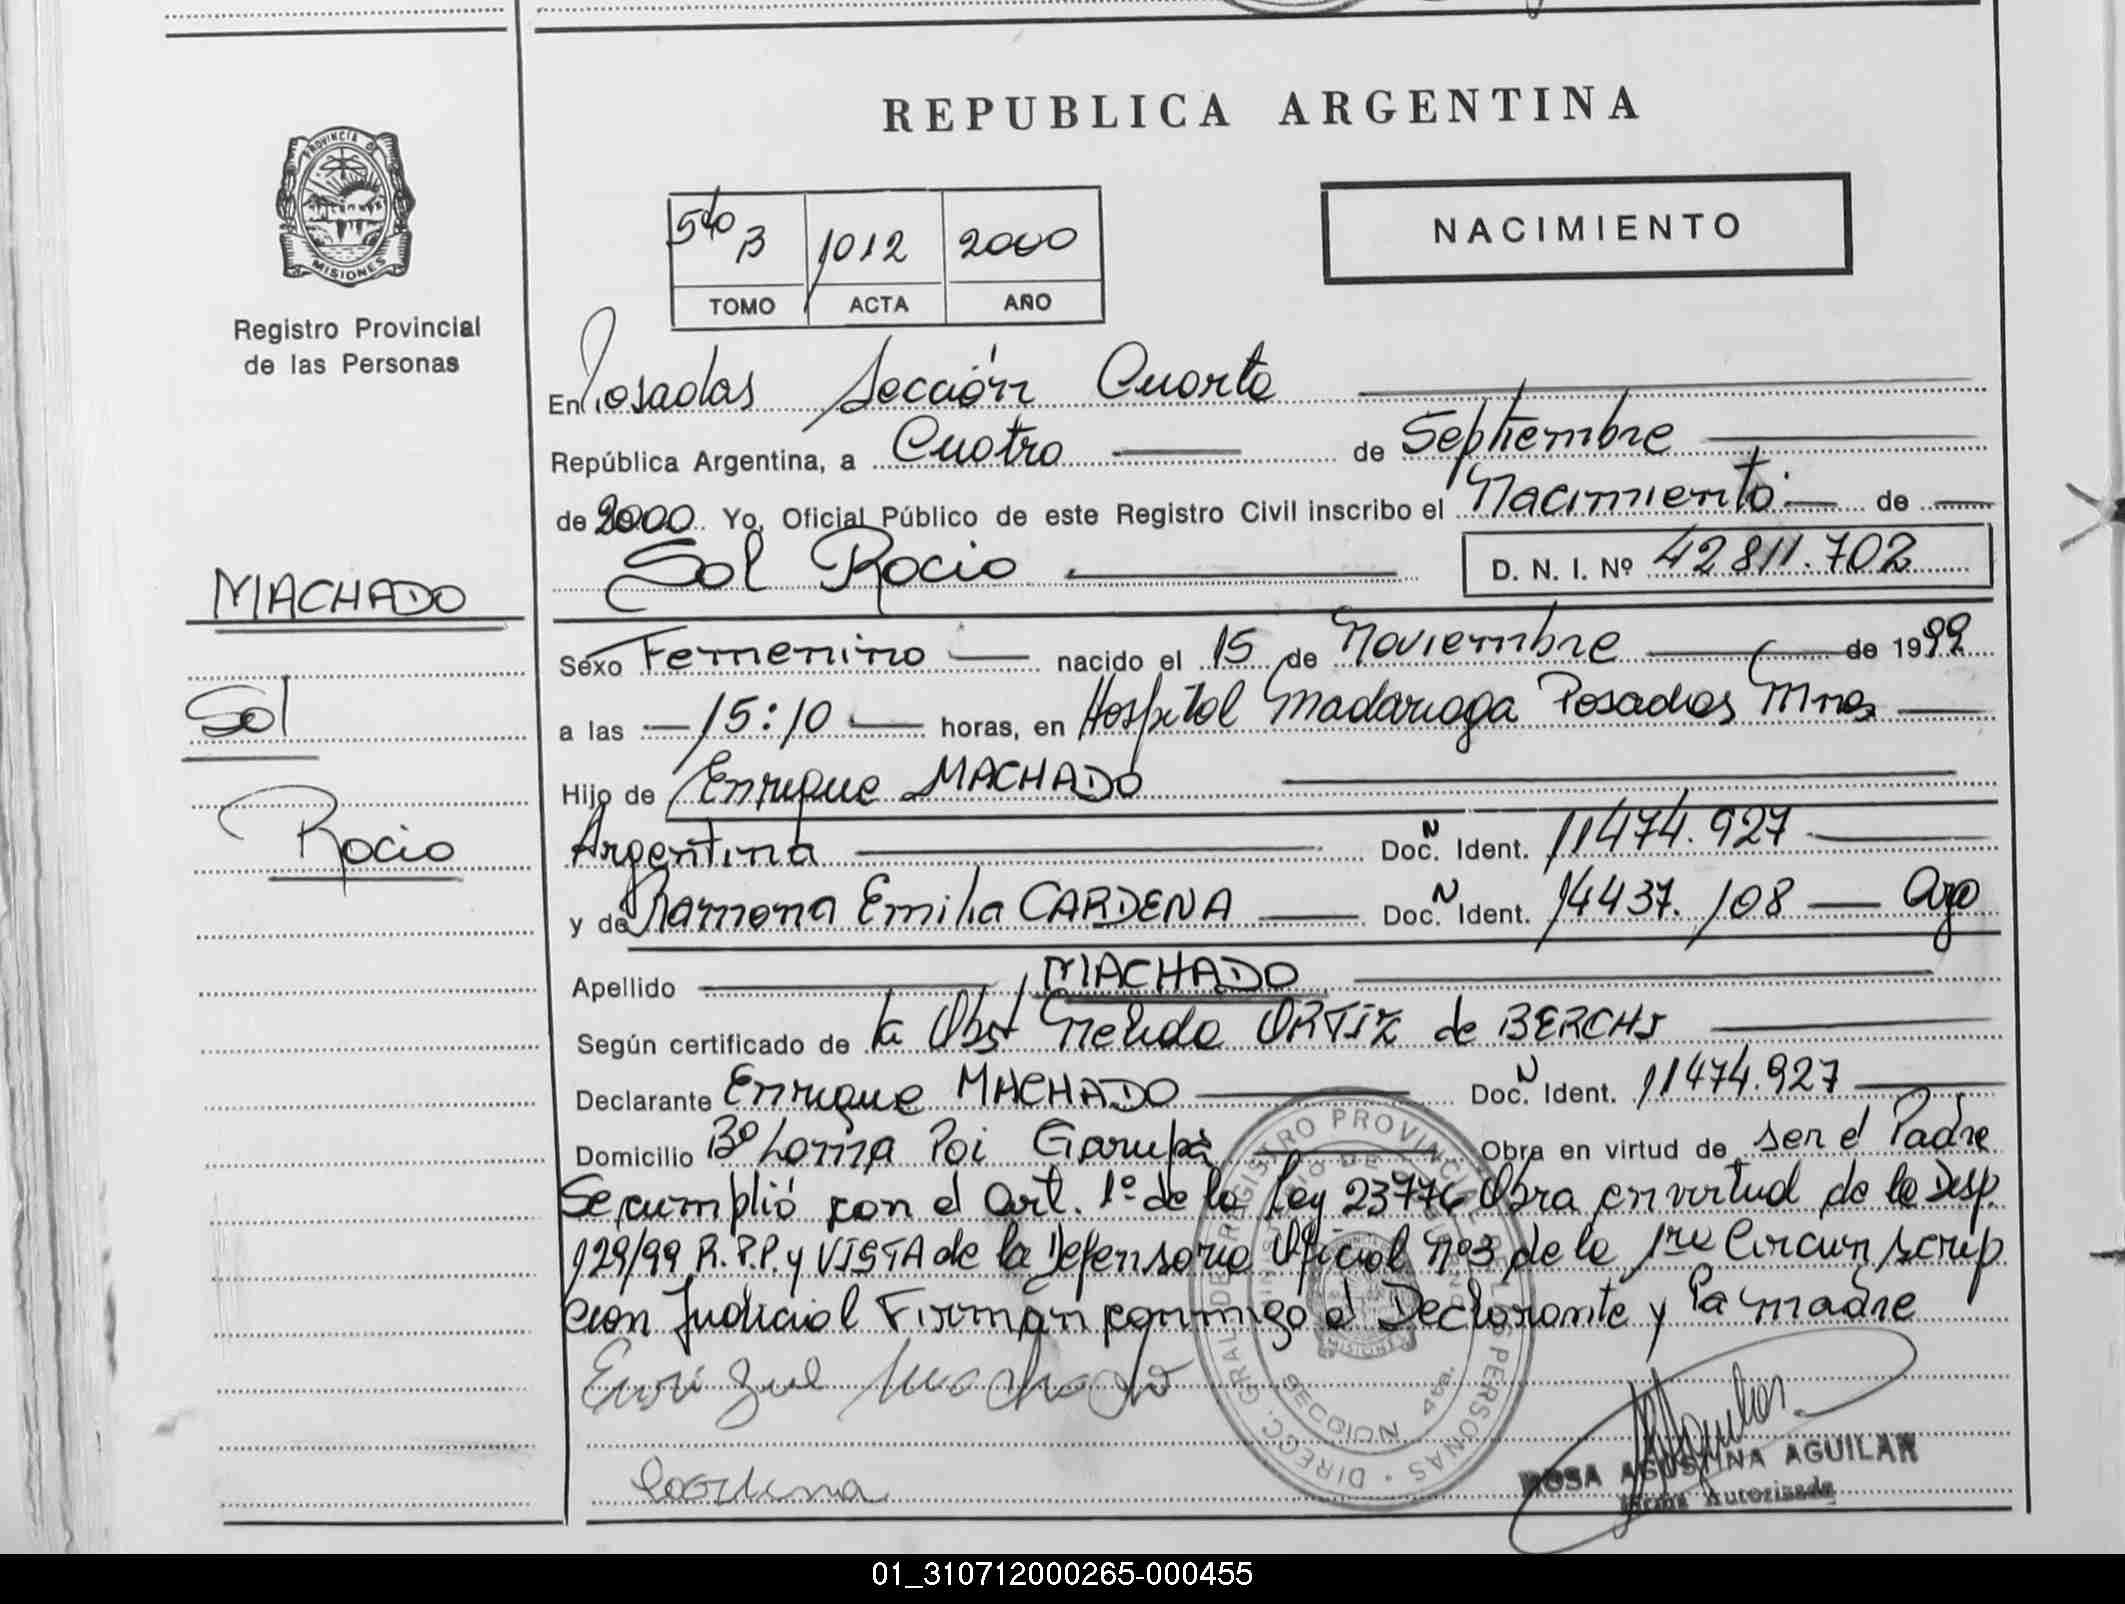 REPUBLICA ARGENTINA
PROVINCIA DE
MISIONES
Registro Provincial
de las Personas
NACIMIENTO
5to B 1012 2000
TOMO ACTA AÑO
En Posadas Sección Cuarta
República Argentina, a Cuatro de Septiembre
de 2000 Yo, Oficial Público de este Registro Civil inscribo el Nacimiento de
Sol Rocio D. N. I. Nº 42811.702
MACHADO
Sol
Rocio
Sexo Femenino nacido el 15 de Noviembre de 1999
a las 15:10 horas, en Hospital Madariaga Posadas Mnes
Hijo de Enrique MACHADO
Argentina Doc. N Ident. 11474.927
y de Ramona Emilia CARDENA Doc. N Ident. 14437.108 Arg
Apellido MACHADO
Según certificado de la Obst Nelida ORTIZ de BERCHI
Declarante Enrique MACHADO Doc. N Ident. 11474.927
Domicilio Bº Loma Poi Garupá Obra en virtud de ser el Padre
Se cumplió con el Art. 1º de la Ley 23776 Obra en virtud de la Disp.
129/99 R.P.P. y VISTA de la Defensoria Oficial Nº3 de la 1ra Circunscrip
cion Judicial Firman conmigo el Declarante y la madre
Enrique Machado
DIRECC. GRAL. DE REGISTRO PROVINCIAL DE LAS PERSONAS
SECCION 4ta.
Cardena
ROSA AGUSTINA AGUILAR
Firma Autorizada
01_310712000265-000455